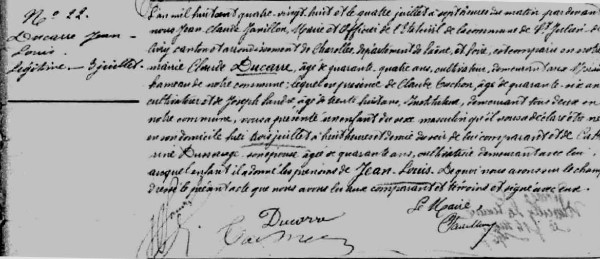 N° 22.
Ducarre Jean-
Louis.
Légitime - 3 juillet.
L'an mil huit cent quatre-vingt-huit et le quatre juillet à sept heures du matin par devant
nous Jean Claude Janillon, Maire et Officier de l'Etat civil de la commune de St Julien de
Civry canton et arrondissement de Charolles, département de Saône et Loire, est comparu en notre
mairie Claude Ducarre, âgé de quarante-quatre ans, cultivateur, demeurant aux
hameau de notre commune; lequel en présence de Claude Cochon, âgé de quarante-six ans
cultivateur et de Joseph âgé de trente huit ans, Instituteur, demeurant tous deux en
notre commune, nous a présenté un enfant du sexe masculin qu'il nous a déclaré être né
en son domicile hier trois juillet à huit heures et demie du soir de lui comparant et de
son épouse âgée de quarante ans, cultivatrice demeurant avec lui
auquel enfant il a donné les prénoms de Jean-Louis. De quoi nous avons sur le champ
dressé le présent acte que nous avons lu aux comparant et témoins et signé avec eux.
Le Maire
Ducarre